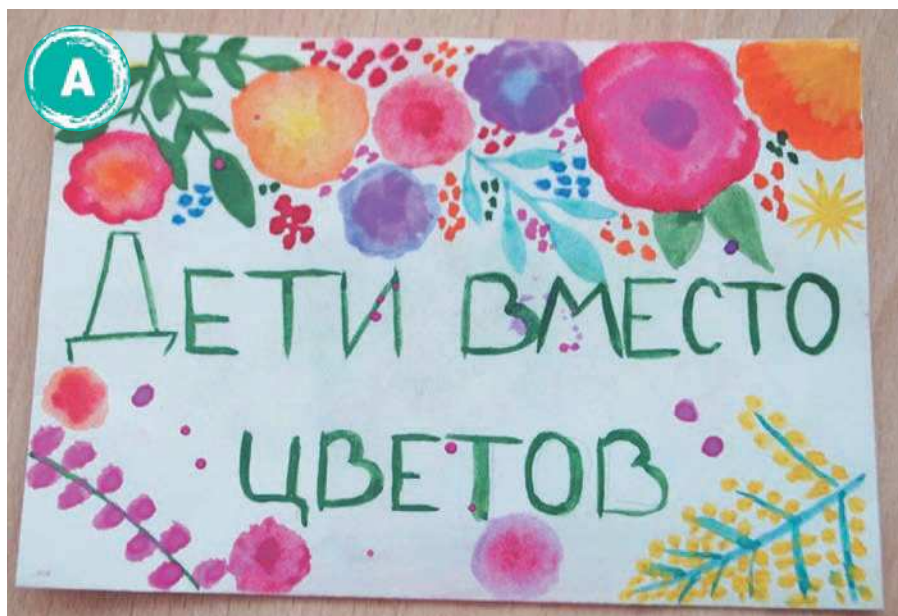 А
ДЕТИ ВМЕСТО
ЦВЕТОВ